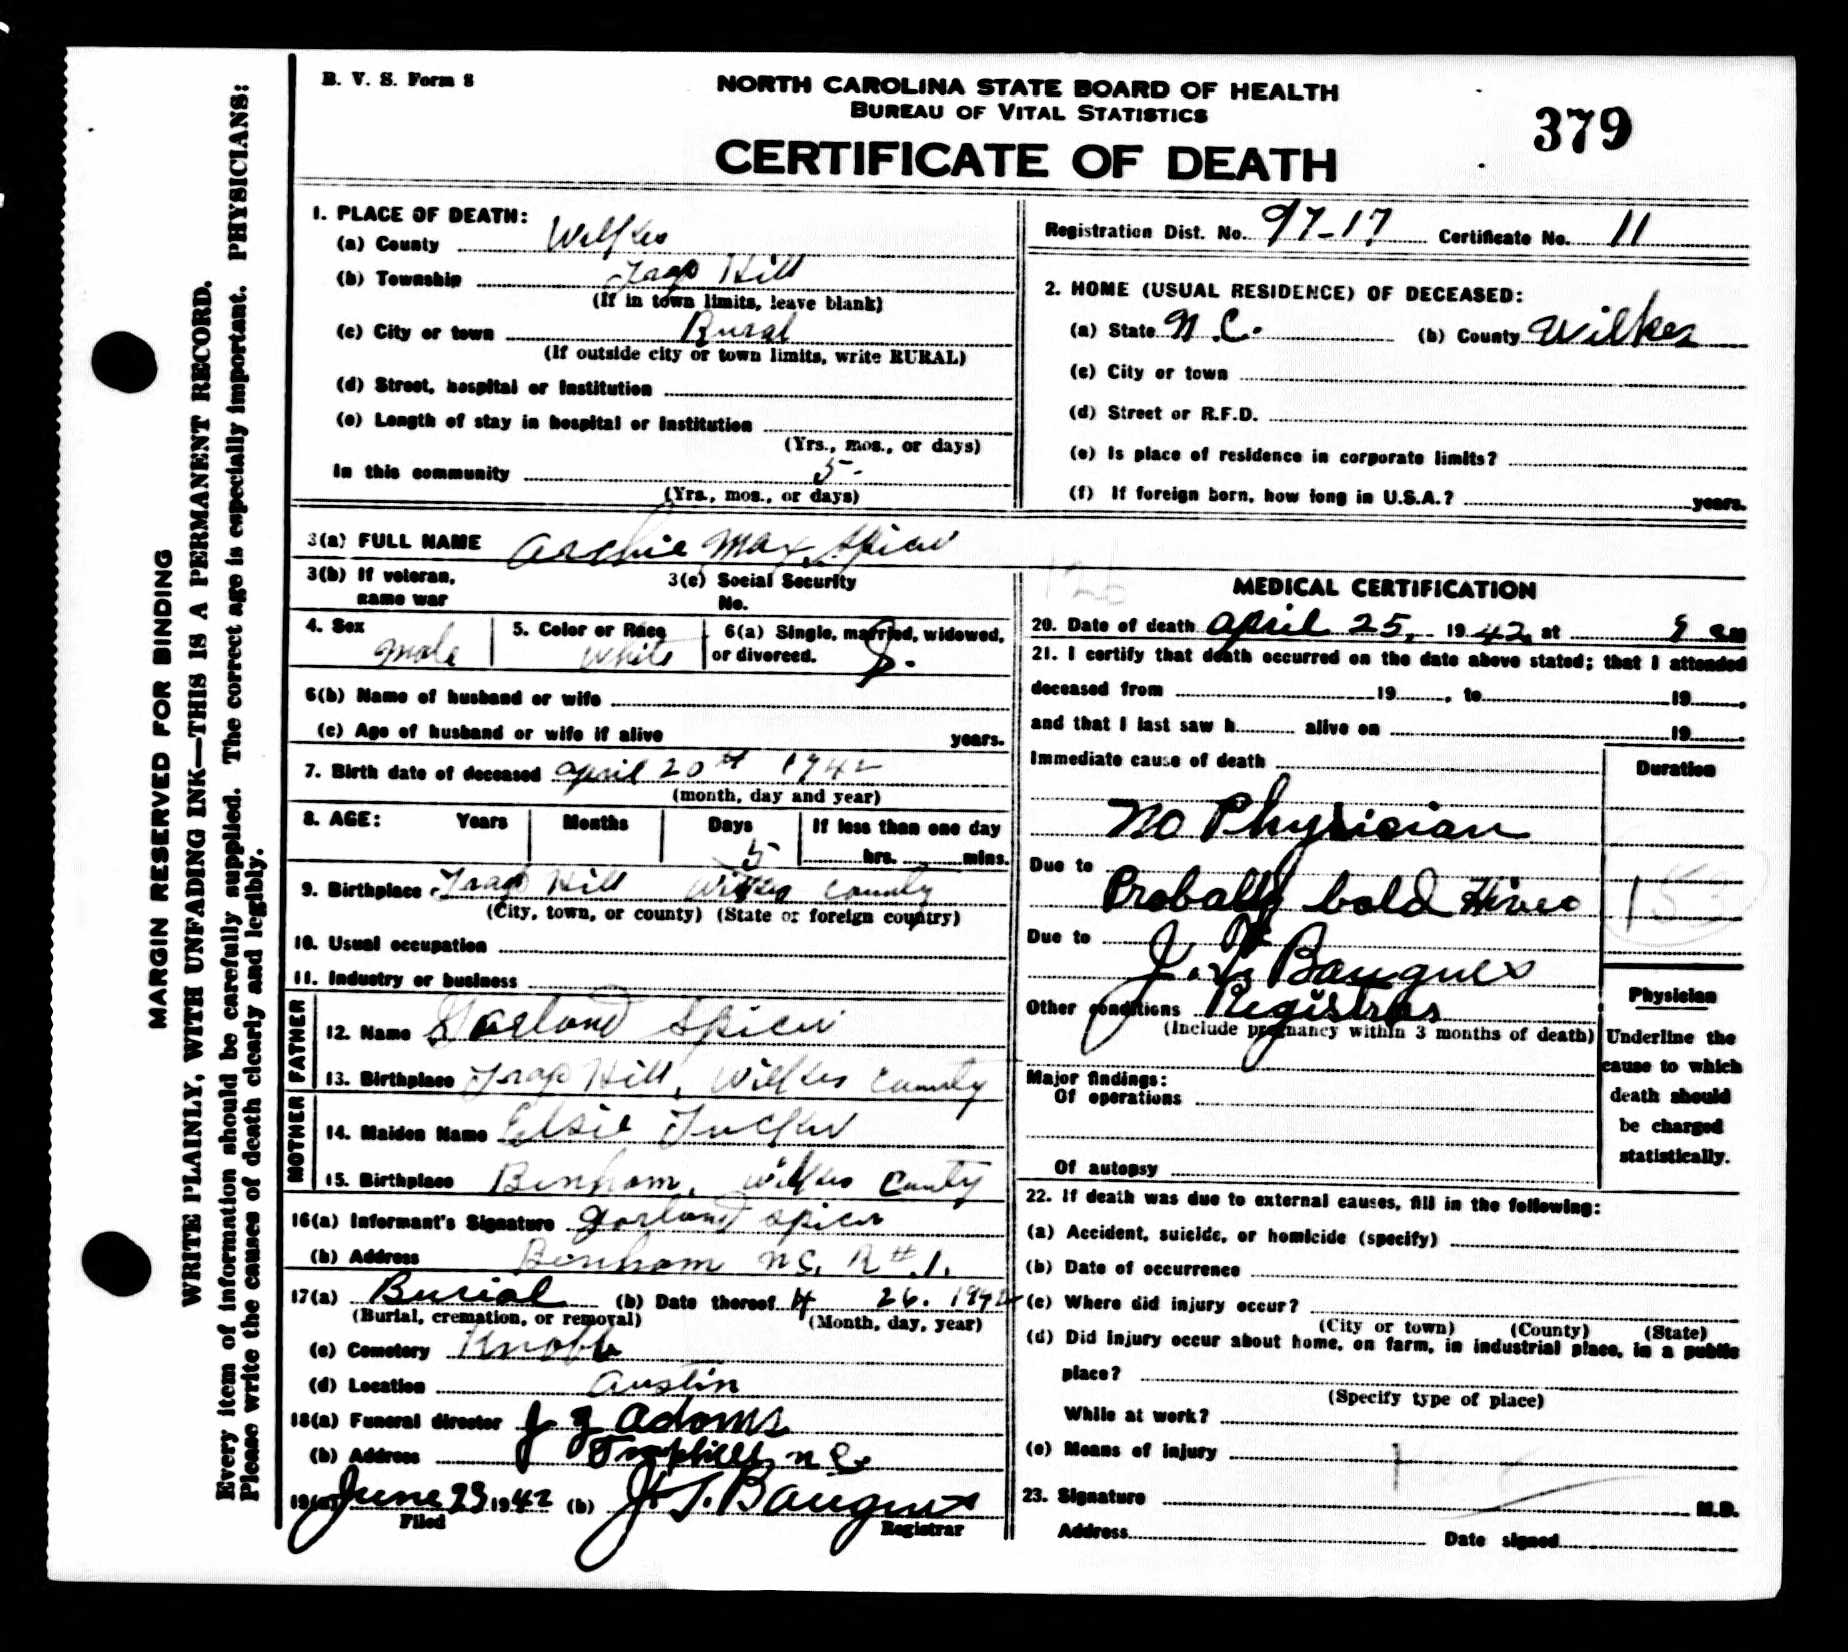 B. V. S. Form 8
NORTH CAROLINA STATE BOARD OF HEALTH
BUREAU OF VITAL STATISTICS
CERTIFICATE OF DEATH
379
MARGIN RESERVED FOR BINDING
WRITE PLAINLY, WITH UNFADING INK—THIS IS A PERMANENT RECORD.
Every item of information should be carefully supplied. The correct age is especially important. PHYSICIANS:
Please write the causes of death clearly and legibly.
1. PLACE OF DEATH:
(a) County Wilkes
(b) Township Trap Hill
(If in town limits, leave blank)
(c) City or town Rural
(If outside city or town limits, write RURAL)
(d) Street, hospital or institution
(e) Length of stay in hospital or institution
(Yrs., mos., or days)
In this community 5
(Yrs., mos., or days)
Registration Dist. No. 97-17 Certificate No. 11
2. HOME (USUAL RESIDENCE) OF DECEASED:
(a) State N.C. (b) County Wilkes
(c) City or town
(d) Street or R.F.D.
(e) Is place of residence in corporate limits?
(f) If foreign born, how long in U.S.A.? years.
3(a) FULL NAME Archie Max Spicer
3(b) If veteran, name war
3(c) Social Security No.
4. Sex Male
5. Color or Race White
6(a) Single, married, widowed, or divorced. S.
6(b) Name of husband or wife
(c) Age of husband or wife if alive years.
7. Birth date of deceased April 20th 1942
(month, day and year)
8. AGE: Years Months Days 5 If less than one day hrs. mins.
9. Birthplace Trap Hill Wilkes County
(City, town, or county) (State or foreign country)
10. Usual occupation
11. Industry or business
FATHER
12. Name Garland Spicer
13. Birthplace Trap Hill, Wilkes County
MOTHER
14. Maiden Name Elsie Tucker
15. Birthplace Benham, Wilkes County
16(a) Informant's Signature Garland Spicer
(b) Address Benham NC. R#.1.
17(a) Burial (b) Date thereof 4 26. 1942
(Burial, cremation, or removal) (Month, day, year)
(c) Cemetery Knobb
(d) Location Austin
18(a) Funeral director Adams
(b) Address Traphill, N C.
19(a) June 23 1942 (b) J. T. Bauguess
Filed Registrar
MEDICAL CERTIFICATION
20. Date of death April 25, 1942 at 9 am
21. I certify that death occurred on the date above stated; that I attended
deceased from 19 , to 19 .
and that I last saw h alive on 19 .
Immediate cause of death
Duration
No Physician
Due to
Probally bold Hives
Due to
J. T. Bauguess
Other conditions Registrar
(Include pregnancy within 3 months of death)
Physician
Underline the
cause to which
death should
be charged
statistically.
Major findings:
Of operations
Of autopsy
22. If death was due to external causes, fill in the following:
(a) Accident, suicide, or homicide (specify)
(b) Date of occurrence
(c) Where did injury occur?
(City or town) (County) (State)
(d) Did injury occur about home, on farm, in industrial place, in a public
place?
(Specify type of place)
While at work?
(e) Means of injury
23. Signature M.D.
Address Date signed